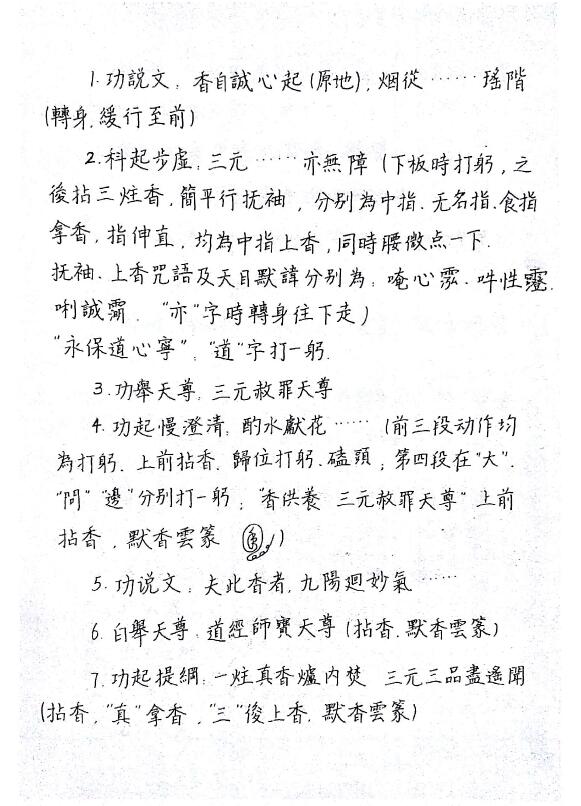 1.功説文：香自誠心起(原地)，烟從……瑤階
(轉身，緩行至前)
2.科起步虛：三元……亦無障(下板時打躬，之
後拈三炷香，簡平行抚袖，分别為中指.无名指.食指
拿香，指伸直，均為中指上香，同時腰微点一下.
抚袖.上香咒語及天目默諱分别為：唵心.吽性
唎誠."亦"字時轉身往下走)
"永保道心寧"："道"字打一躬.
3.功舉天尊：三元赦罪天尊
4.功起慢澄清：酌水獻花……(前三段动作均
為打躬.上前拈香.歸位打躬.磕頭；第四段在"大".
"問""邊"分别打一躬；"香供養 三元赦罪天尊"上前
拈香，默香雲篆)
5.功说文：夫此香者，九陽廻妙氣……
6.白舉天尊：道經師寶天尊(拈香.默香雲篆)
7.功起提綱：一炷真香爐内焚 三元三品盡遙聞
(拈香，"真"拿香，"三"後上香.默香雲篆)